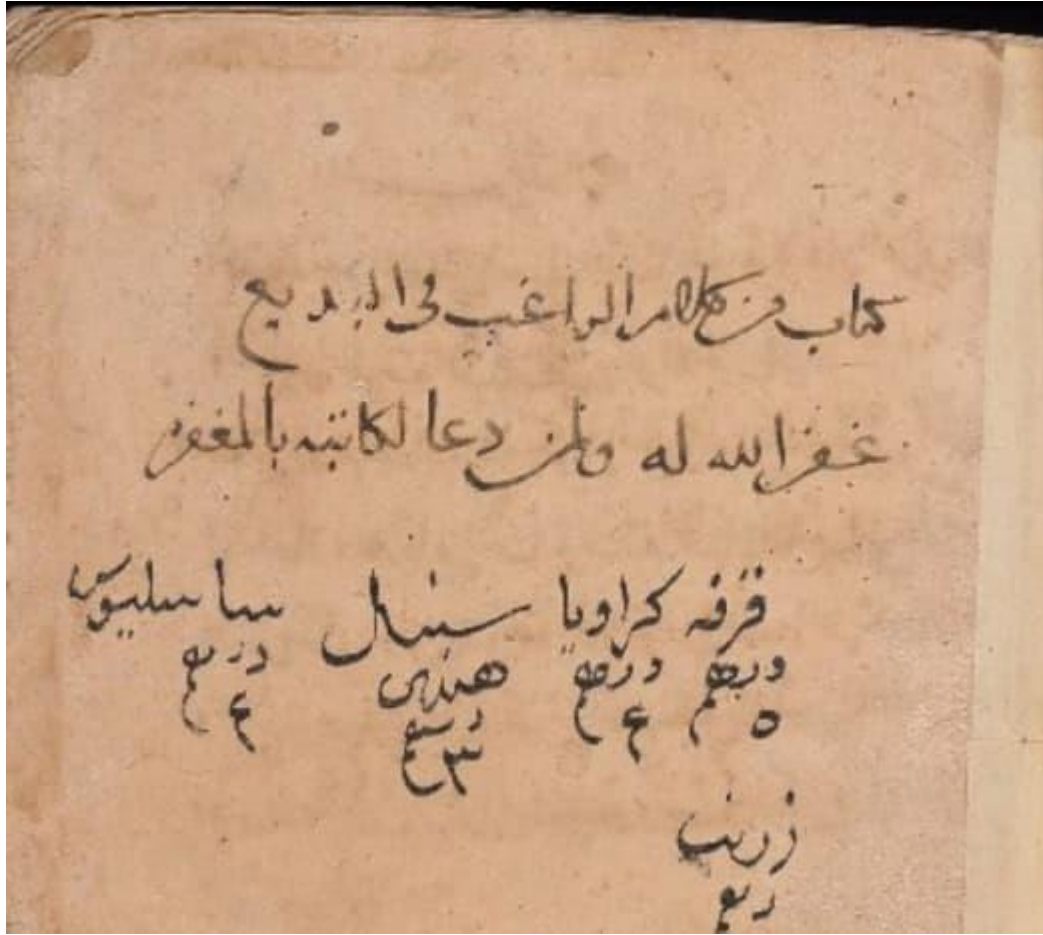 كتاب من كلام الراغب في البديع
غفر الله له ولمن دعا لكاتبه بالمغفر
قرفه كراويا سنبل ساساليوس
درهم درهم هندي درهم
٥ ٤ درهم ٤
٣
زرنب